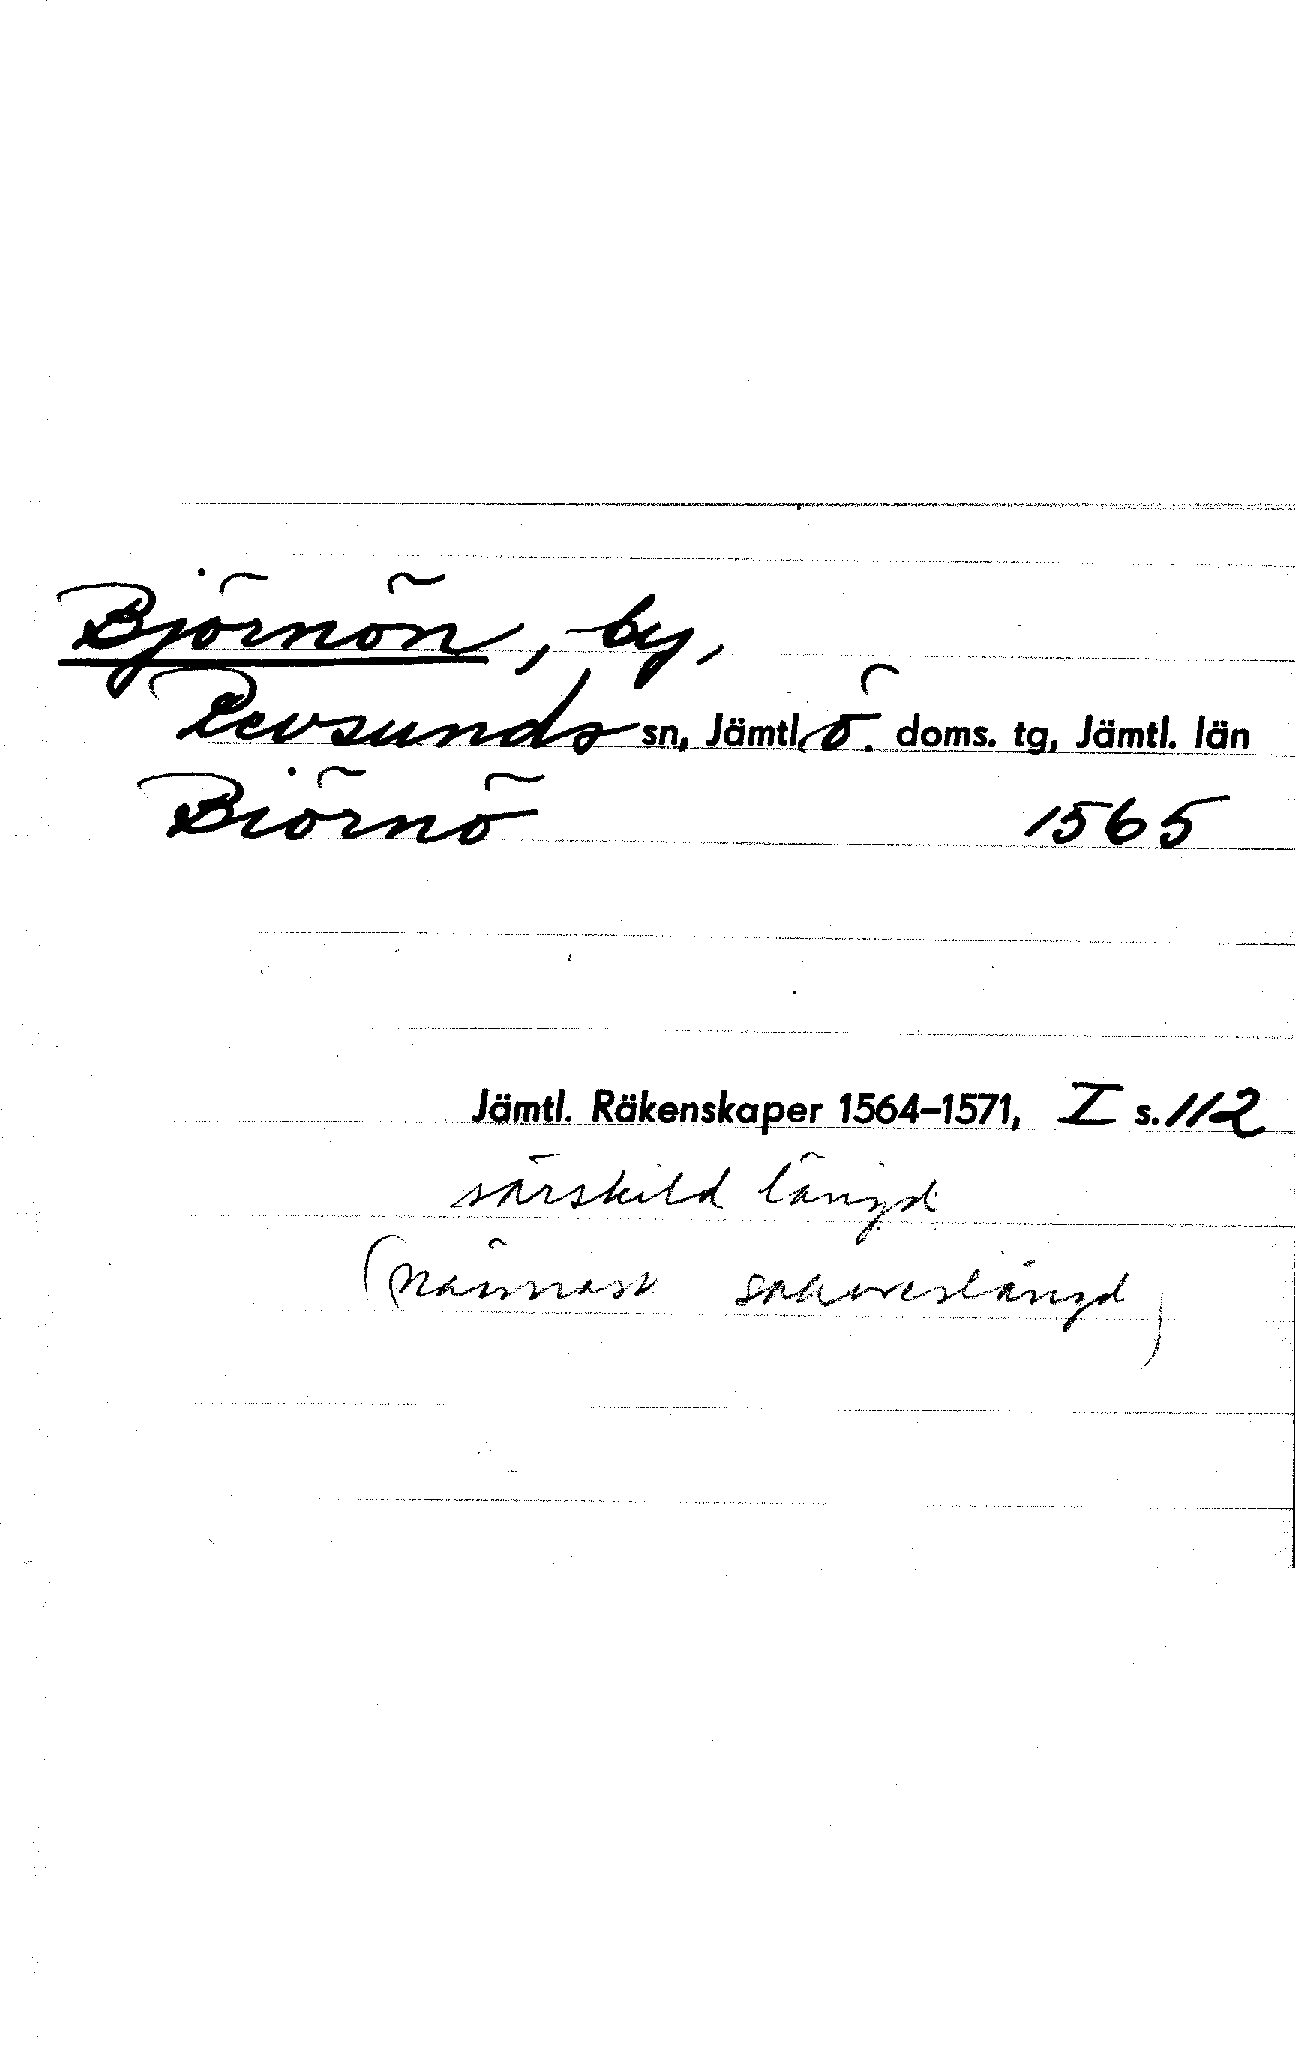 Björnön, by,
Revsunds sn, Jämtl. Ö. doms. tg, Jämtl. län
Biörnö 1565
Jämtl. Räkenskaper 1564–1571, I s. 112
särskild längd
(närmast sakoreslängd)